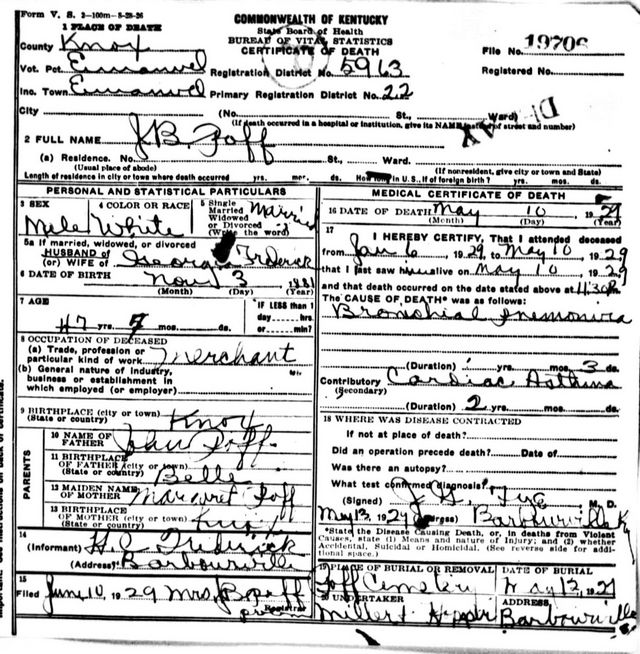 Form V. S. 3-100m-8-28-26
COMMONWEALTH OF KENTUCKY
State Board of Health
BUREAU OF VITAL STATISTICS
CERTIFICATE OF DEATH
1 PLACE OF DEATH
County Knox
File No. 19706
Vot. Pct. Emanuel Registration District No. 5963 Registered No.
Inc. Town Emanuel Primary Registration District No. 22
City (No. St., Ward)
(If death occurred in a hospital or institution, give its NAME instead of street and number)
2 FULL NAME J.B. Poff
(a) Residence. No. St., Ward.
(Usual place of abode) (If nonresident, give city or town and State)
Length of residence in city or town where death occurred yrs. mos. ds. How long in U.S., if of foreign birth? yrs. mos. ds.
PERSONAL AND STATISTICAL PARTICULARS
3 SEX 4 COLOR OR RACE 5 Single Married Widowed or Divorced (Write the word)
Male White Married
5a If married, widowed, or divorced
HUSBAND of
(or) WIFE of Georgia Frederick
6 DATE OF BIRTH Nov 3 1881
(Month) (Day) (Year)
7 AGE IF LESS than 1
day hrs.
47 yrs. mos. ds. or min.?
8 OCCUPATION OF DECEASED
(a) Trade, profession or
particular kind of work Merchant
(b) General nature of industry,
business or establishment in
which employed (or employer)
9 BIRTHPLACE (city or town) Knox
(State or country)
PARENTS
10 NAME OF FATHER John Poff
11 BIRTHPLACE
OF FATHER (city or town)
(State or country) Bell
12 MAIDEN NAME
OF MOTHER Margaret Poff
13 BIRTHPLACE
OF MOTHER (city or town) Knox
(State or country)
14
(Informant) H.C. Frederick
(Address) Barbourville
15
Filed June 10, 1929 Mrs.
Registrar
MEDICAL CERTIFICATE OF DEATH
16 DATE OF DEATH May 10 1929
(Month) (Day) (Year)
17
I HEREBY CERTIFY, That I attended deceased
from Jan 6 1929 to May 10, 1929
that I last saw him alive on May 10, 1929
and that death occurred on the date stated above at 11:30 P.m.
The CAUSE OF DEATH* was as follows:
Bronchial pnemonira
(Duration) yrs. mos. 3 ds.
Contributory Cardiac Asthma
(Secondary)
(Duration) 2 yrs. mos. ds.
18 WHERE WAS DISEASE CONTRACTED
If not at place of death?
Did an operation precede death? Date of
Was there an autopsy?
What test confirmed diagnosis?
(Signed) M. D.
May 13, 1929 (Address) Barbourville Ky
*State the Disease Causing Death, or, in deaths from Violent
Causes, state (1) Means and nature of Injury; and (2) whether
Accidental, Suicidal or Homicidal. (See reverse side for addi-
tional space.)
19 PLACE OF BURIAL OR REMOVAL DATE OF BURIAL
Poff Cemetery May 12, 1929
20 UNDERTAKER ADDRESS
Millert Hopper Barbourville